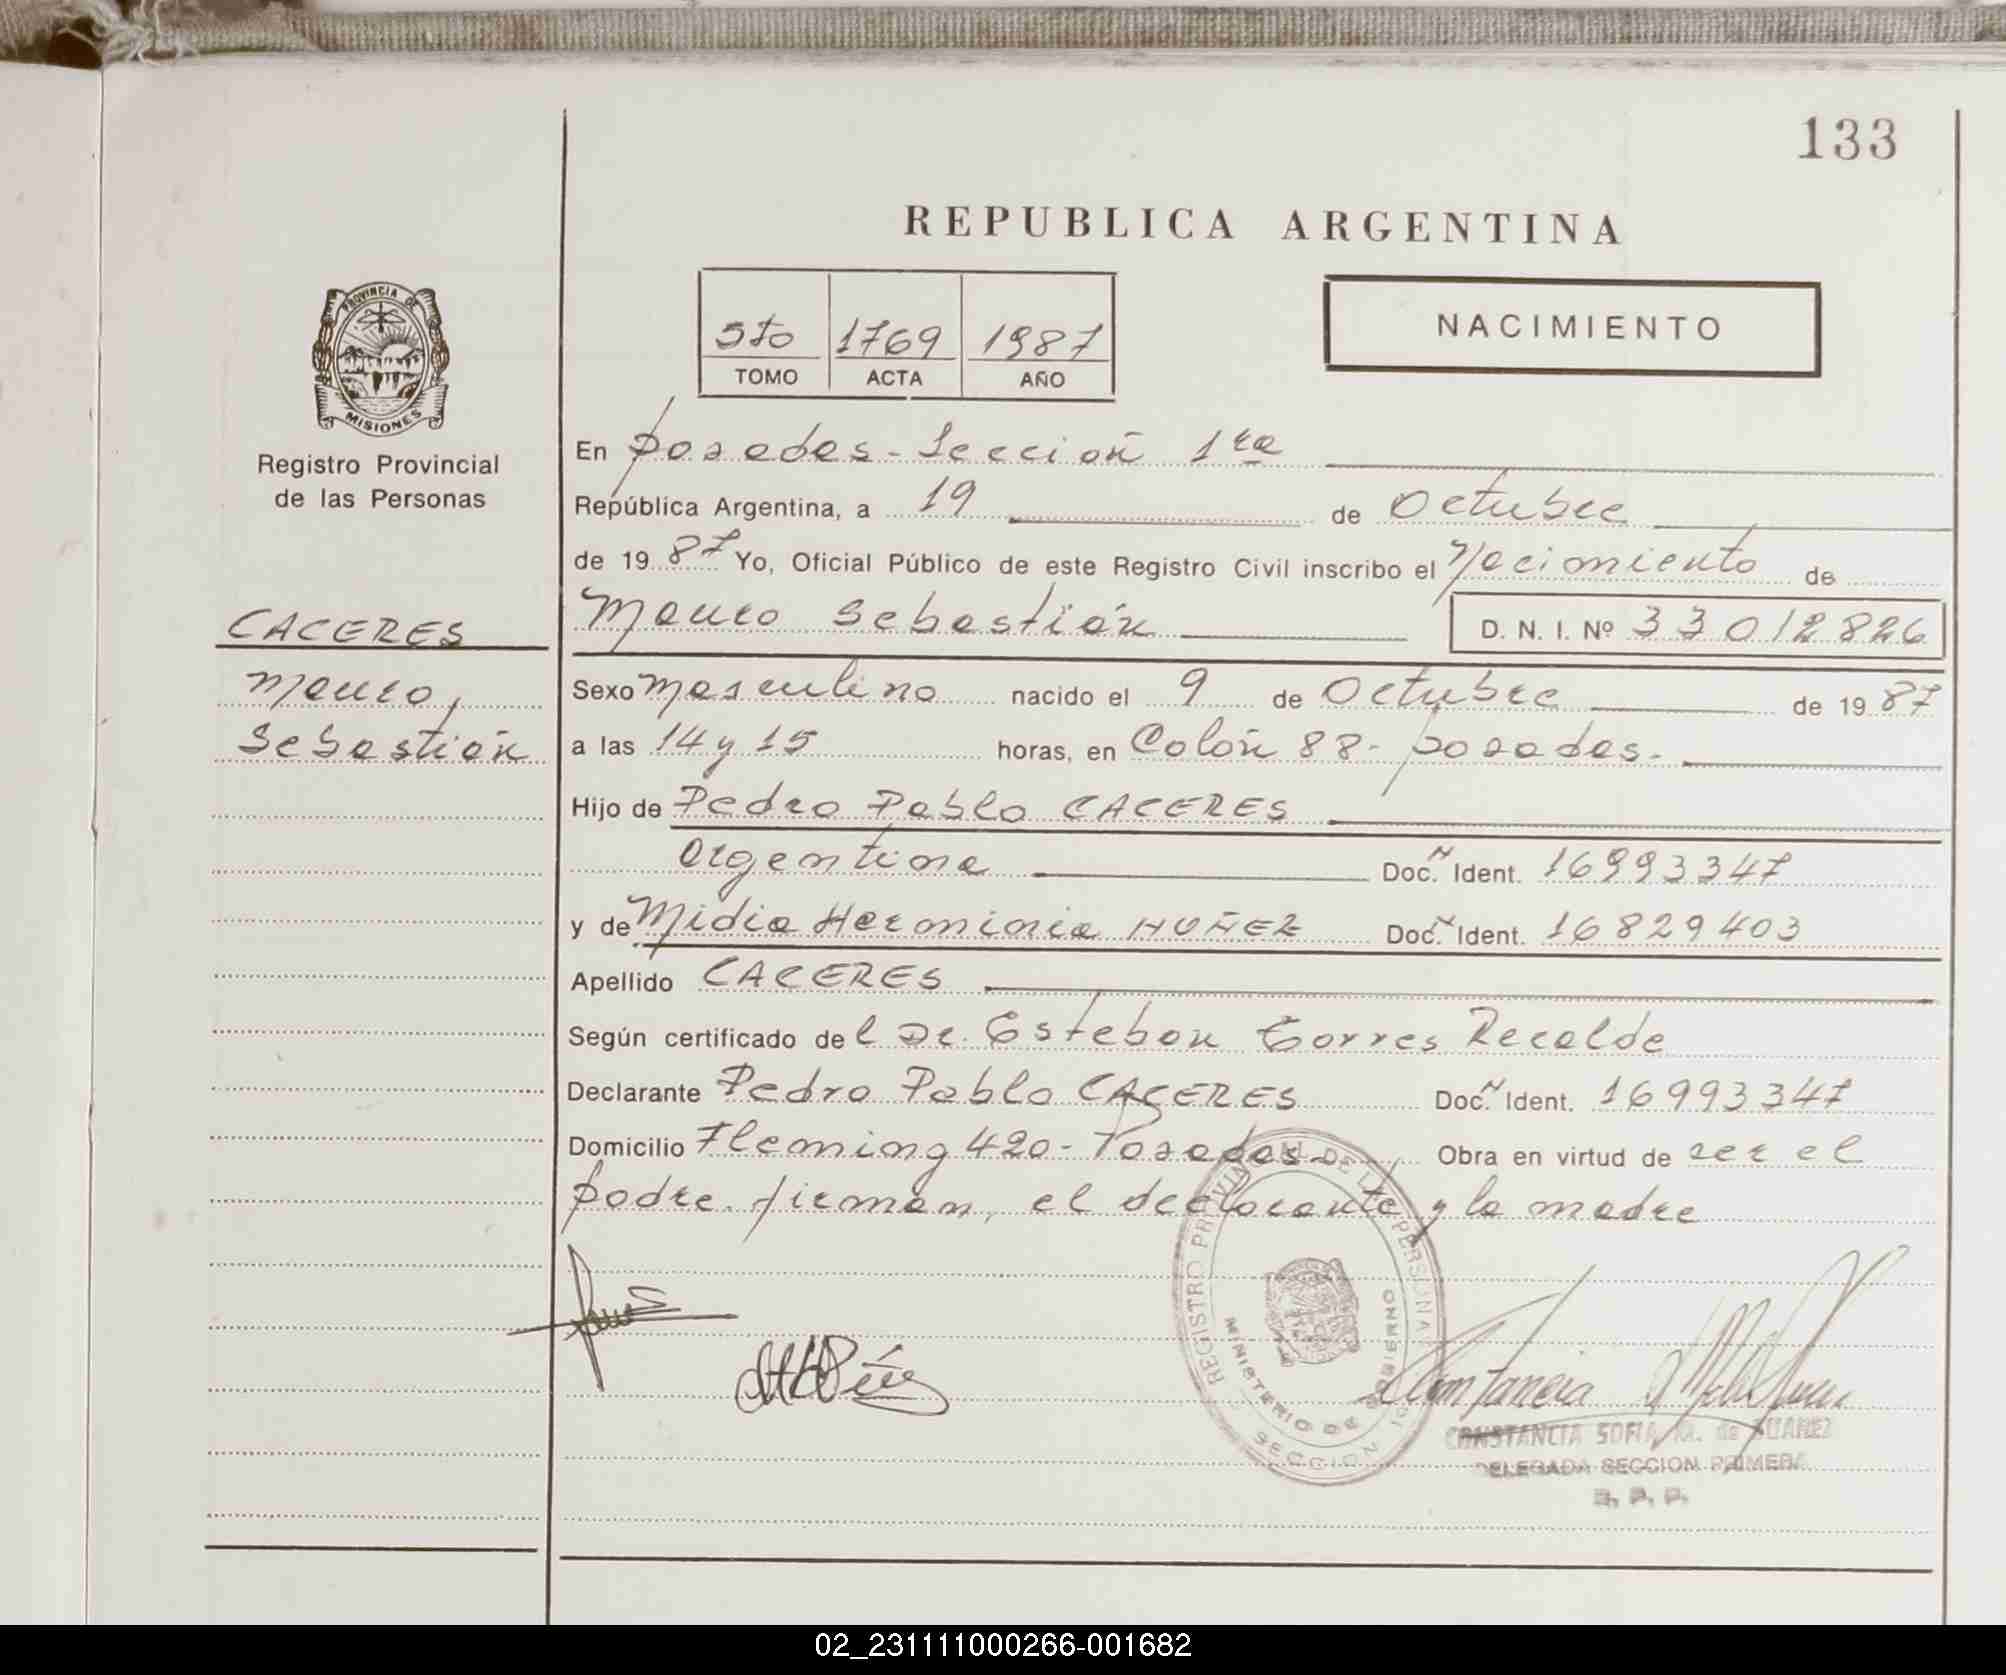 133
REPUBLICA ARGENTINA
5to 1769 1987
TOMO ACTA AÑO
NACIMIENTO
PROVINCIA DE
MISIONES
Registro Provincial
de las Personas
CACERES
Mauro,
Sebastián
En Posadas - Sección 1ra
República Argentina, a 19 de Octubre
de 1987 Yo, Oficial Público de este Registro Civil inscribo el Nacimiento de
Mauro Sebastián D. N. I. Nº 33012826
Sexo Masculino nacido el 9 de Octubre de 1987
a las 14 y 15 horas, en Colón 88 - Posadas.
Hijo de Pedro Pablo CACERES
Argentina Doc. N Ident. 16993347
y de Midia Herminia NUÑEZ Doc. N Ident. 16829403
Apellido CACERES
Según certificado del Dr. Esteban Torres Recalde
Declarante Pedro Pablo CACERES Doc. N Ident. 16993347
Domicilio Fleming 420 - Posadas - Obra en virtud de ser el
padre. firman, el declarante y la madre
REGISTRO PROVINCIAL DE LAS PERSONAS
MINISTERIO DE GOBIERNO
SECCION 1º
CONSTANCIA SOFIA M. de SUAREZ
DELEGADA SECCION PRIMERA
R. P. P.
02_231111000266-001682